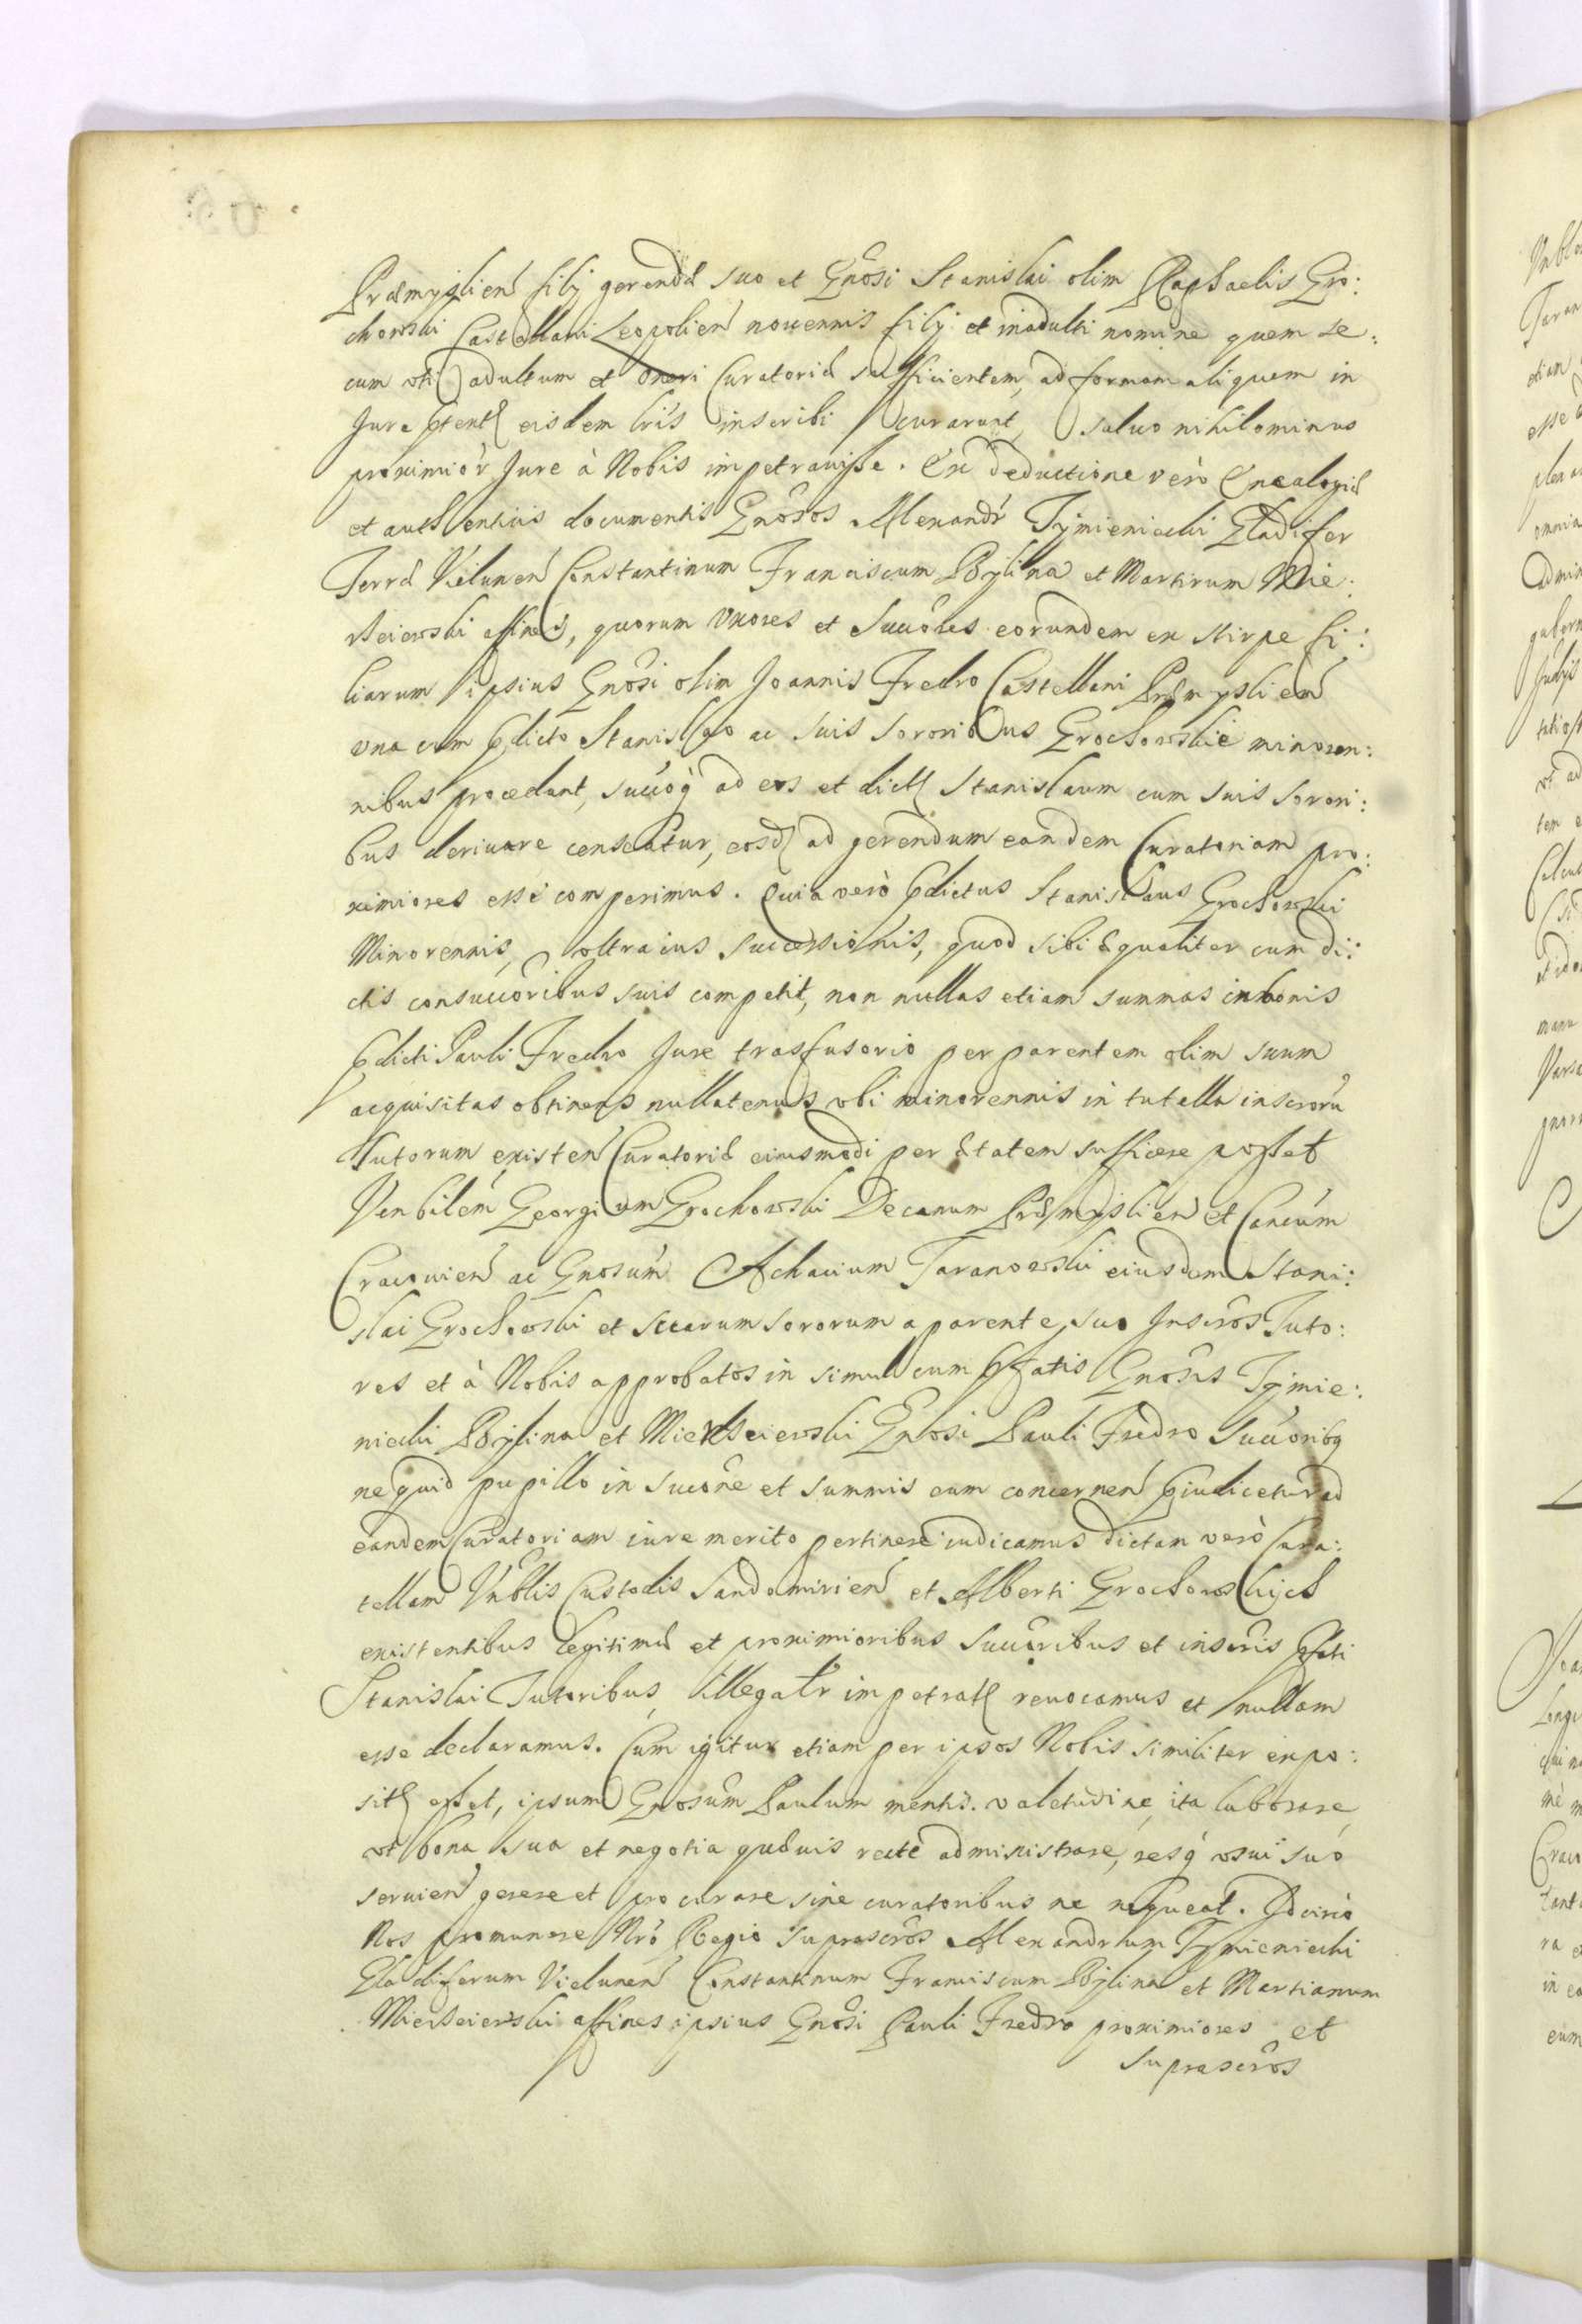 Præmyslien filÿ gerendæ suo et Gnosi Stanislai olim Raphaelis Gro:
chowski Castellani Leopolien nouennis filÿ et inadulti nomine quem se:
cum vti adultum et oneri Curatoriæ sufficientem, ad formam aliquem in
Jure ptentę eisdem lris inscribi curarunt, saluo nihilominus
proximiōr Jure à Nobis impetrauisse. Ex deductione verò Genealogiæ
et authenticis documentis Gnōsos Alexandr Tÿmieniecki Gladifer
Terræ Vielunen Constantinum Franciscum Bÿlina et Martinum Mie:
rzeiewski affines, quorum vxores et Succōres eorundem ex stirpe fi:
liarum ipsius Gnōsi olim Joannis Fredro Castellani Præmyslien
vna cum pdicto Stanislao ac suis sororibus Grochowskie minoren:
nibus procedunt, succōq ad eos et dictę Stanislaum cum suis sorori:
bus deriuare censeatur, eosdę ad gerendum eandem Curatoriam pro:
ximiores esse comperimus. Quia verò pdictus Stanislaus Grochowski
Minorennis, vltra ius successionis, quod sibi æqualiter cum di:
ctis consuccōribus suis competit, non nullas etiam summas in bonis
pdicti Pauli Fredro Jure trasfusorio per parentem olim suum
acquisitas obtinens nullatenus vbi minorennis in tutella inscrorū
Tutorum existen Curatoriæ eiusmodi per ætatem sufficere posset
Venbilem Georgium Grochowski Decanum Præmyslien et Cancūm
Cracouien ac Gnosūm Achacium Taranowski eiusdem Stani:
slai Grochowski et suarum sororum a parente suo Inscrōs Tuto:
res et à Nobis approbatos in simul cum pfatis Gnōsis Tÿmie:
niecki Bÿlina et Mierzeiewski Gnōsi Pauli Fredro Succōribq
ne quid pupillo in succōne et summis eum concernen piudicetur ad
eandem Curatoriam iure merito pertinere iudicamus dictan verò Cura:
tellam Vnblis Custodis Sandomirien et Alberti Grochowskich
existentibus legitimis et proximioribus Succōribus et inscris pfati
Stanislai Tutoribus, illegaltr impetratę reuocamus et nullam
esse declaramus. Cum igitur etiam per ipsos Nobis similiter expo:
sitę esset, ipsum Gnosūm Paulum mentis valetudine ita laborare,
vt bona sua et negotia quæuis rectè administrare, resq vsui suo
seruien gerere et procurare sine curatoribus ne nequeat. Idcircò
Nos pro munere Nrō Regio suprascrōs Alexandrum Tymieniecki
Gladiferum Vielunen Constantinum Franciscum Bÿlina et Martianum
Mierzeiewski affines ipsius Gnōsi Pauli Fredro proximiores et
suprascrōs